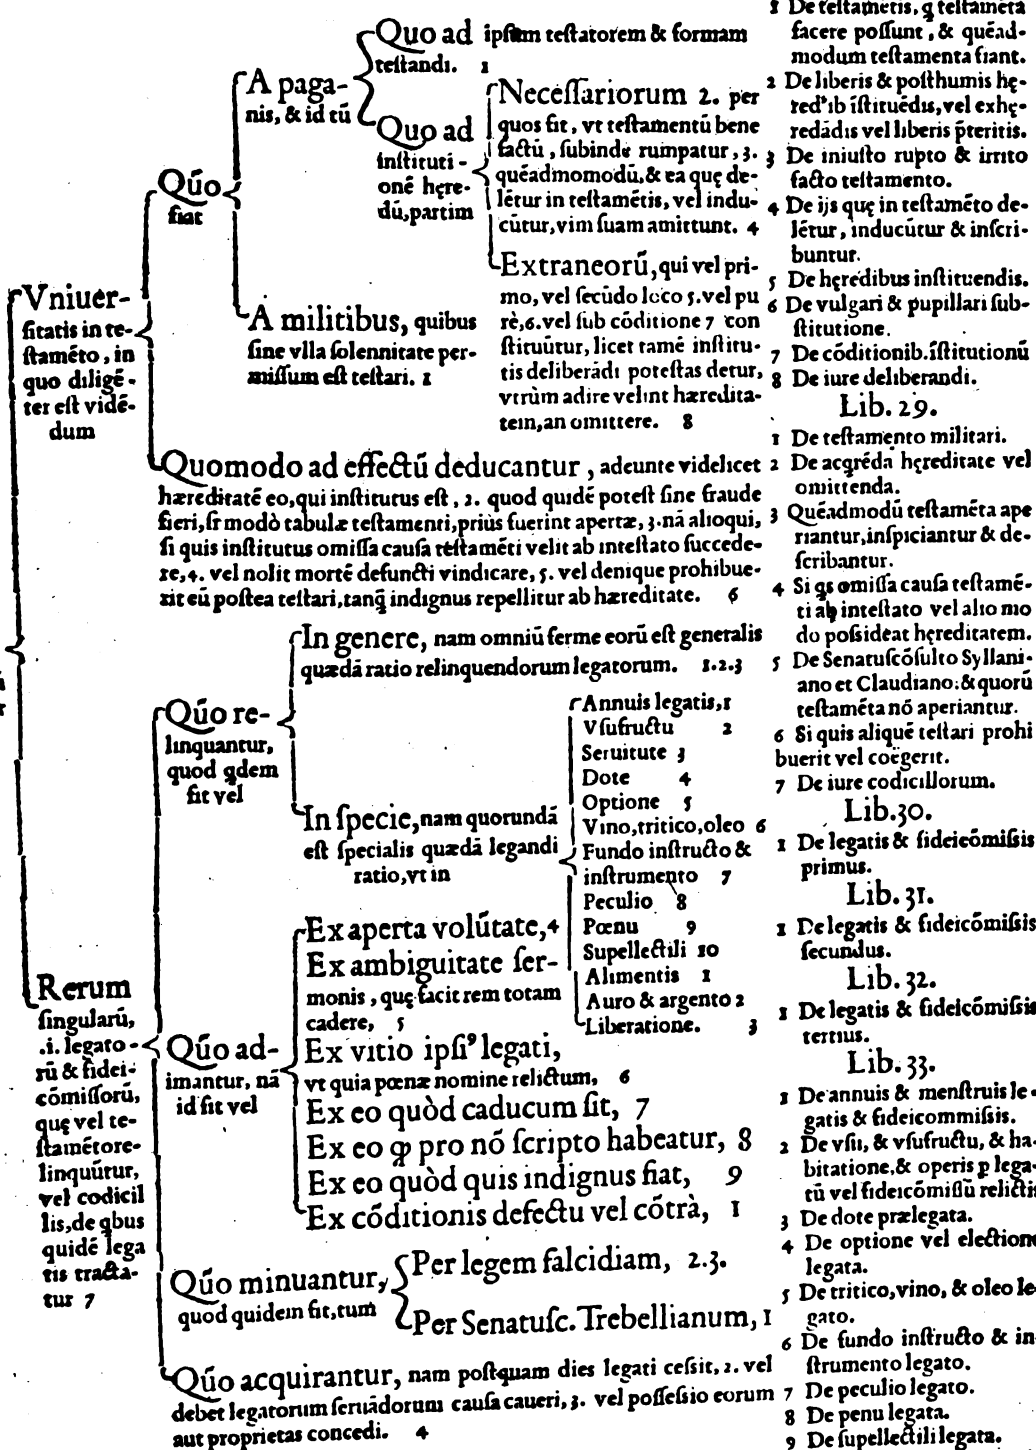 Quo ad ipsum testatorem & formam
testandi. 1
A paga-
nis, & id tū
Quo ad
instituti-
onē hęre-
dū, partim
Necessariorum 2. per
quos fit, vt testamentū bene
factū, subinde rumpatur, 3.
quēadmomodū, & ea quę de-
lētur in testamētis, vel indu-
cūtur, vim suam amittunt. 4
Extraneorū, qui vel pri-
mo, vel secūdo loco 5. vel pu
rè, 6. vel sub cōditione 7 con
stituūtur, licet tamē institu-
tis deliberādi potestas detur,
vtrùm adire velint hæredita-
tem, an omittere. 8
Qūo
fiat
A militibus, quibus
sine vlla solennitate per-
missum est testari. 1
Vniuer-
sitatis in te-
stamēto, in
quo diligē-
ter est vidē-
dum
Quomodo ad effectū deducantur, adeunte videlicet
hæreditatē eo, qui institutus est, 2. quod quidē potest sine fraude
fieri, si modò tabulæ testamenti, priùs fuerint apertæ, 3. nā alioqui,
si quis institutus omissa causa testamēti velit ab intestato succede-
re, 4. vel nolit mortē defuncti vindicare, 5. vel denique prohibue-
rit eū postea testari, tanq̄ indignus repellitur ab hæreditate. 6
In genere, nam omniū ferme eorū est generalis
quædā ratio relinquendorum legatorum. 1.2.3
Qūo re-
linquantur,
quod qdem
fit vel
In specie, nam quorundā
est specialis quædā legandi
ratio, vt in
Annuis legatis, 1
Vsufructu 2
Seruitute 3
Dote 4
Optione 5
Vino, tritico, oleo 6
Fundo instructo &
instrumento 7
Peculio 8
Pœnu 9
Supellectili 10
Alimentis 1
Auro & argento 2
Liberatione. 3
Rerum
singularū,
.i. legato-
rū & fidei-
cōmissorū,
quę vel te-
stamētore-
linquūtur,
vel codicil
lis, de qbus
quidē lega
tis tracta-
tur 7
Qūo ad-
imantur, nā
id fit vel
Ex aperta volūtate, 4
Ex ambiguitate ser-
monis, quę facit rem totam
cadere, 5
Ex vitio ipsi⁹ legati,
vt quia pœnæ nomine relictum, 6
Ex eo quòd caducum sit, 7
Ex eo ꝙ pro nō scripto habeatur, 8
Ex eo quòd quis indignus fiat, 9
Ex cōditionis defectu vel cōtrà, 1
Qūo minuantur,
quod quidem fit, tum
Per legem falcidiam, 2.3.
Per Senatusc. Trebellianum, 1
Qūo acquirantur, nam postquam dies legati cessit, 2. vel
debet legatorum seruādorum causa caueri, 3. vel possessio eorum
aut proprietas concedi. 4
1 De testamētis, q testamēta
facere possunt, & quēad-
modum testamenta fiant.
2 De liberis & posthumis hę-
red'ib īstituēdis, vel exhę-
redādis vel liberis p̄teritis.
3 De iniusto rupto & irrito
facto testamento.
4 De ijs quę in testamēto de-
lētur, inducūtur & inscri-
buntur.
5 De hęredibus instituendis.
6 De vulgari & pupillari sub-
stitutione.
7 De cōditionib. īstitutionū
8 De iure deliberandi.
Lib. 29.
1 De testamento militari.
2 De acqrēda hęreditate vel
omittenda.
3 Quēadmodū testamēta ape
riantur, inspiciantur & de-
scribantur.
4 Si qs omissa causa testamē-
ti ab intestato vel alio mo
do possideat hęreditatem.
5 De Senatuscōsulto Syllani-
ano et Claudiano: & quorū
testamēta nō aperiantur.
6 Si quis aliquē testari prohi
buerit vel coëgerit.
7 De iure codicillorum.
Lib. 30.
1 De legatis & fideicōmissis
primus.
Lib. 31.
1 De legatis & fideicōmissis
secundus.
Lib. 32.
1 De legatis & fideicōmissis
tertius.
Lib. 33.
1 De annuis & menstruis le-
gatis & fideicommissis.
2 De vsu, & vsufructu, & ha-
bitatione, & operis ꝑ lega-
tū vel fideicōmissū relictis
3 De dote prælegata.
4 De optione vel electione
legata.
5 De tritico, vino, & oleo le-
gato.
6 De fundo instructo & in-
strumento legato.
7 De peculio legato.
8 De penu legata.
9 De supellectili legata.